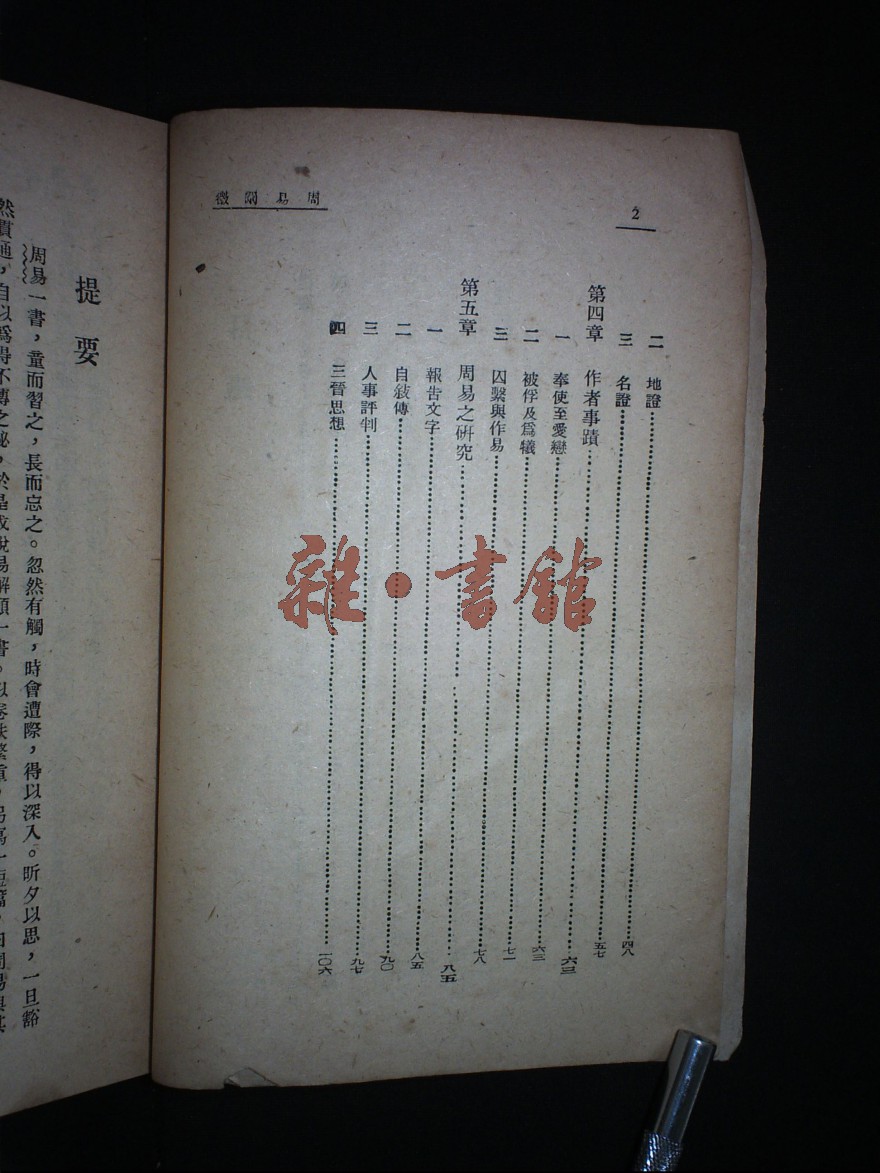 2
周易闡微
二 地證……四八
三 名證……五七
第四章 作者事蹟……六三
一 奉使至愛戀……六三
二 被俘及爲犧……七一
三 囚繫與作易……七八
第五章 周易之研究……八五
一 報告文字……八五
二 自敍傳……九〇
三 人事評判……九七
四 三晉思想……一〇六
提要
周易一書，童而習之，長而忘之。忽然有觸，時會遭際，得以深入。昕夕以思，一旦豁
然貫通，自以爲得不傳之秘，於是成說易解頤一書。以卷帙繁重，
雜·書館